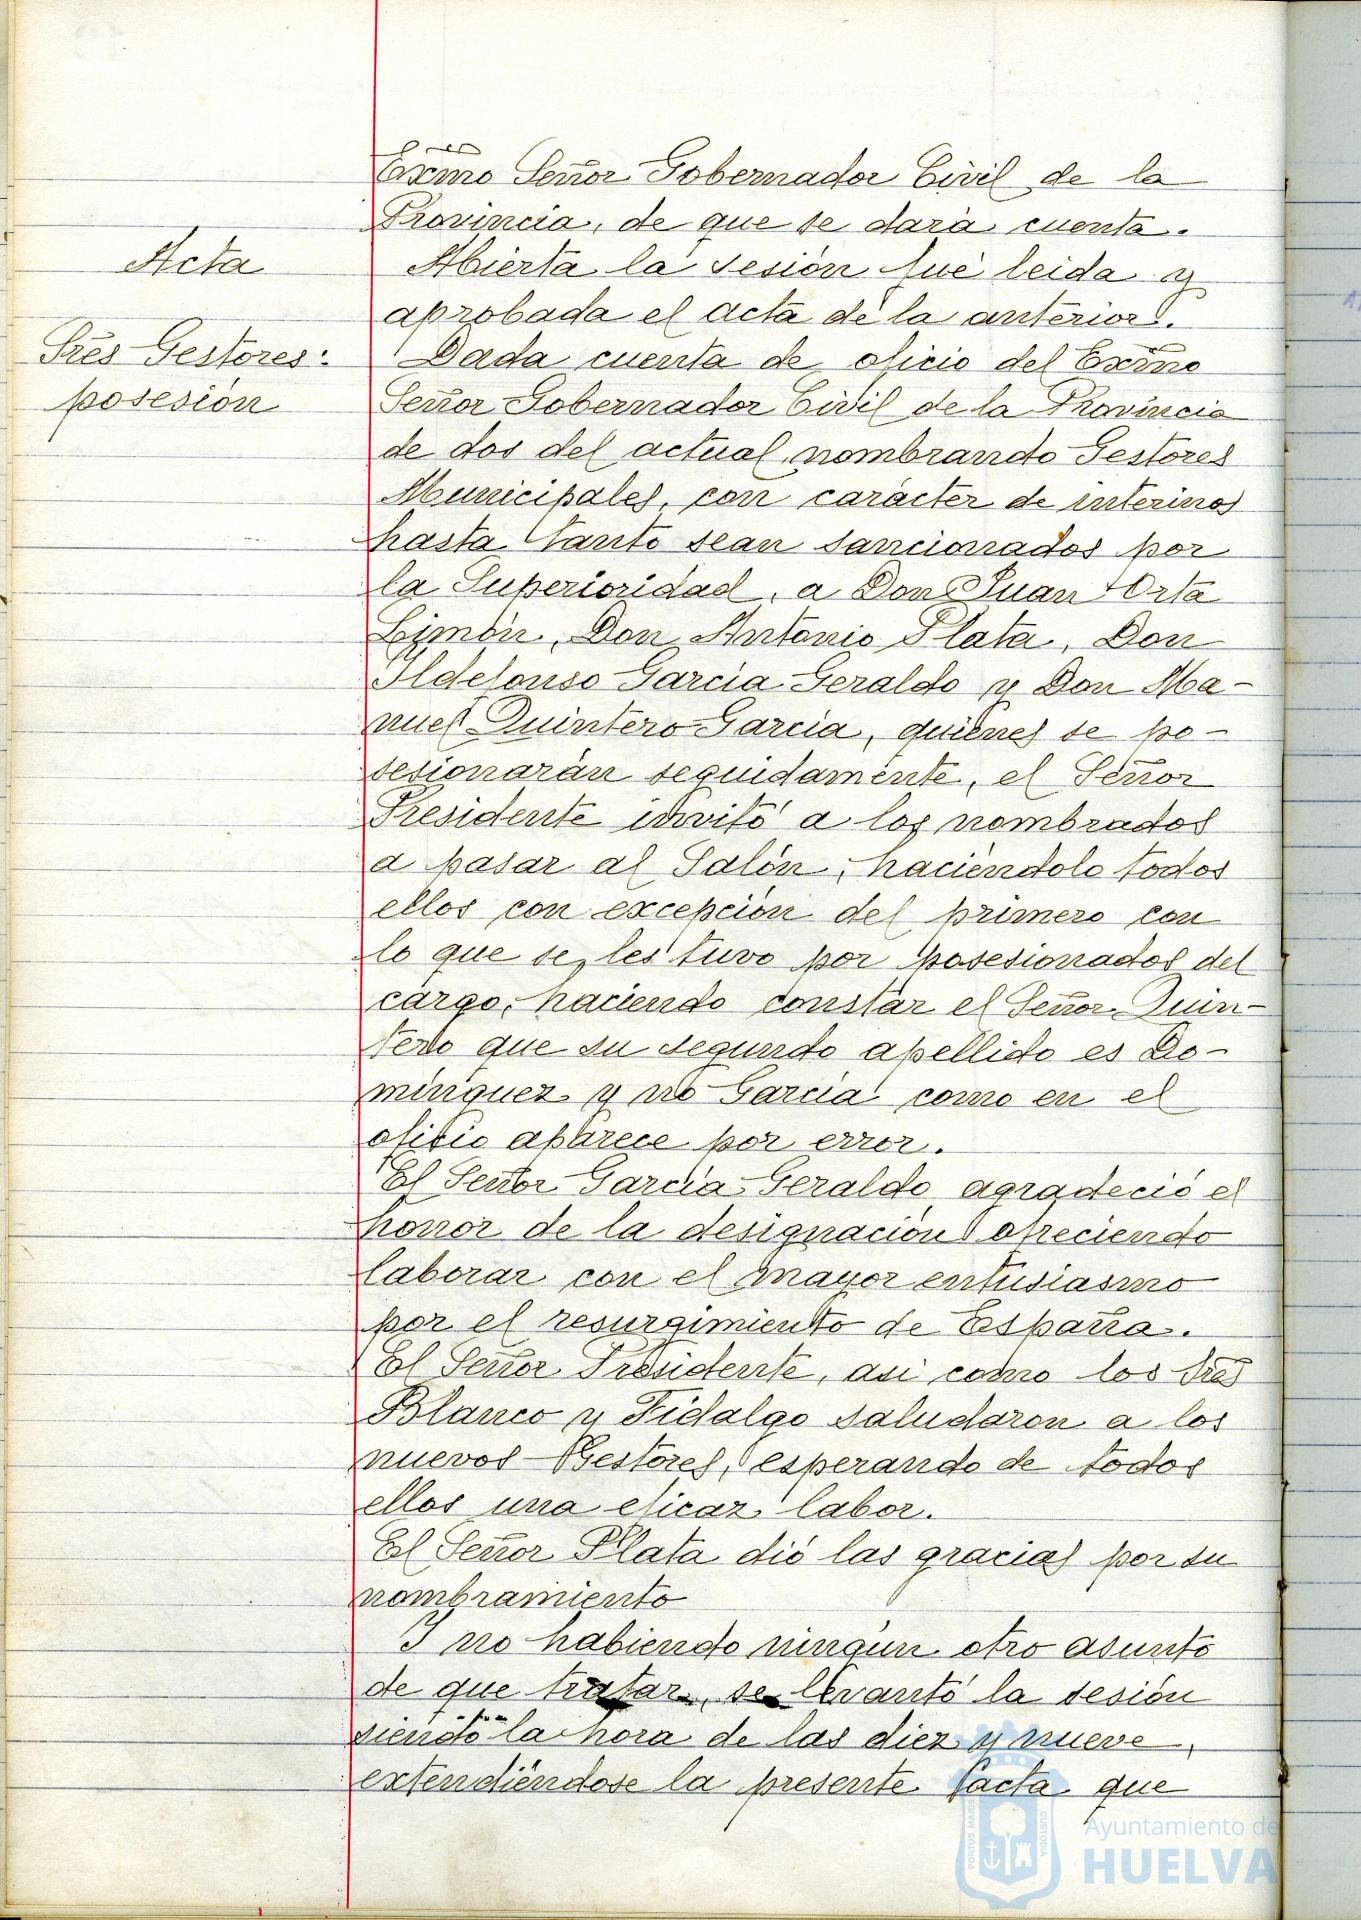 Exmo Señor Gobernador Civil de la
Provincia, de que se dará cuenta.
Acta
Abierta la sesión fué leida y
aprobada el acta de la anterior.
Tres Gestores:
posesión
Dada cuenta de oficio del Exmo
Señor Gobernador Civil de la Provincia
de dos del actual, nombrando Gestores
Municipales, con carácter de interinos
hasta tanto sean sancionados por
la Superioridad, a Don Juan Orta
Limón, Don Antonio Plata, Don
Ildefonso García Geraldo y Don Ma-
nuel Quintero García, quienes se po-
sesionarán seguidamente, el Señor
Presidente invitó a los nombrados
a pasar al Salón, haciéndolo todos
ellos con excepción del primero con
lo que se les tuvo por posesionados del
cargo, haciendo constar el Señor Quin-
tero que su segundo apellido es Do-
minguez y no García como en el
oficio aparece por error.
El Señor García Geraldo agradeció el
honor de la designación ofreciendo
laborar con el mayor entusiasmo
por el resurgimiento de España.
El Señor Presidente, asi como los Sres
Blanco y Fidalgo saludaron a los
nuevos Gestores, esperando de todos
ellos una eficaz labor.
El Señor Plata dió las gracias por su
nombramiento
Y no habiendo ningún otro asunto
de que tratar, se levantó la sesión
siendo la hora de las diez y nueve,
extendiéndose la presente acta que
PORTUS MARIS
CUSTODIA
Ayuntamiento de
HUELVA